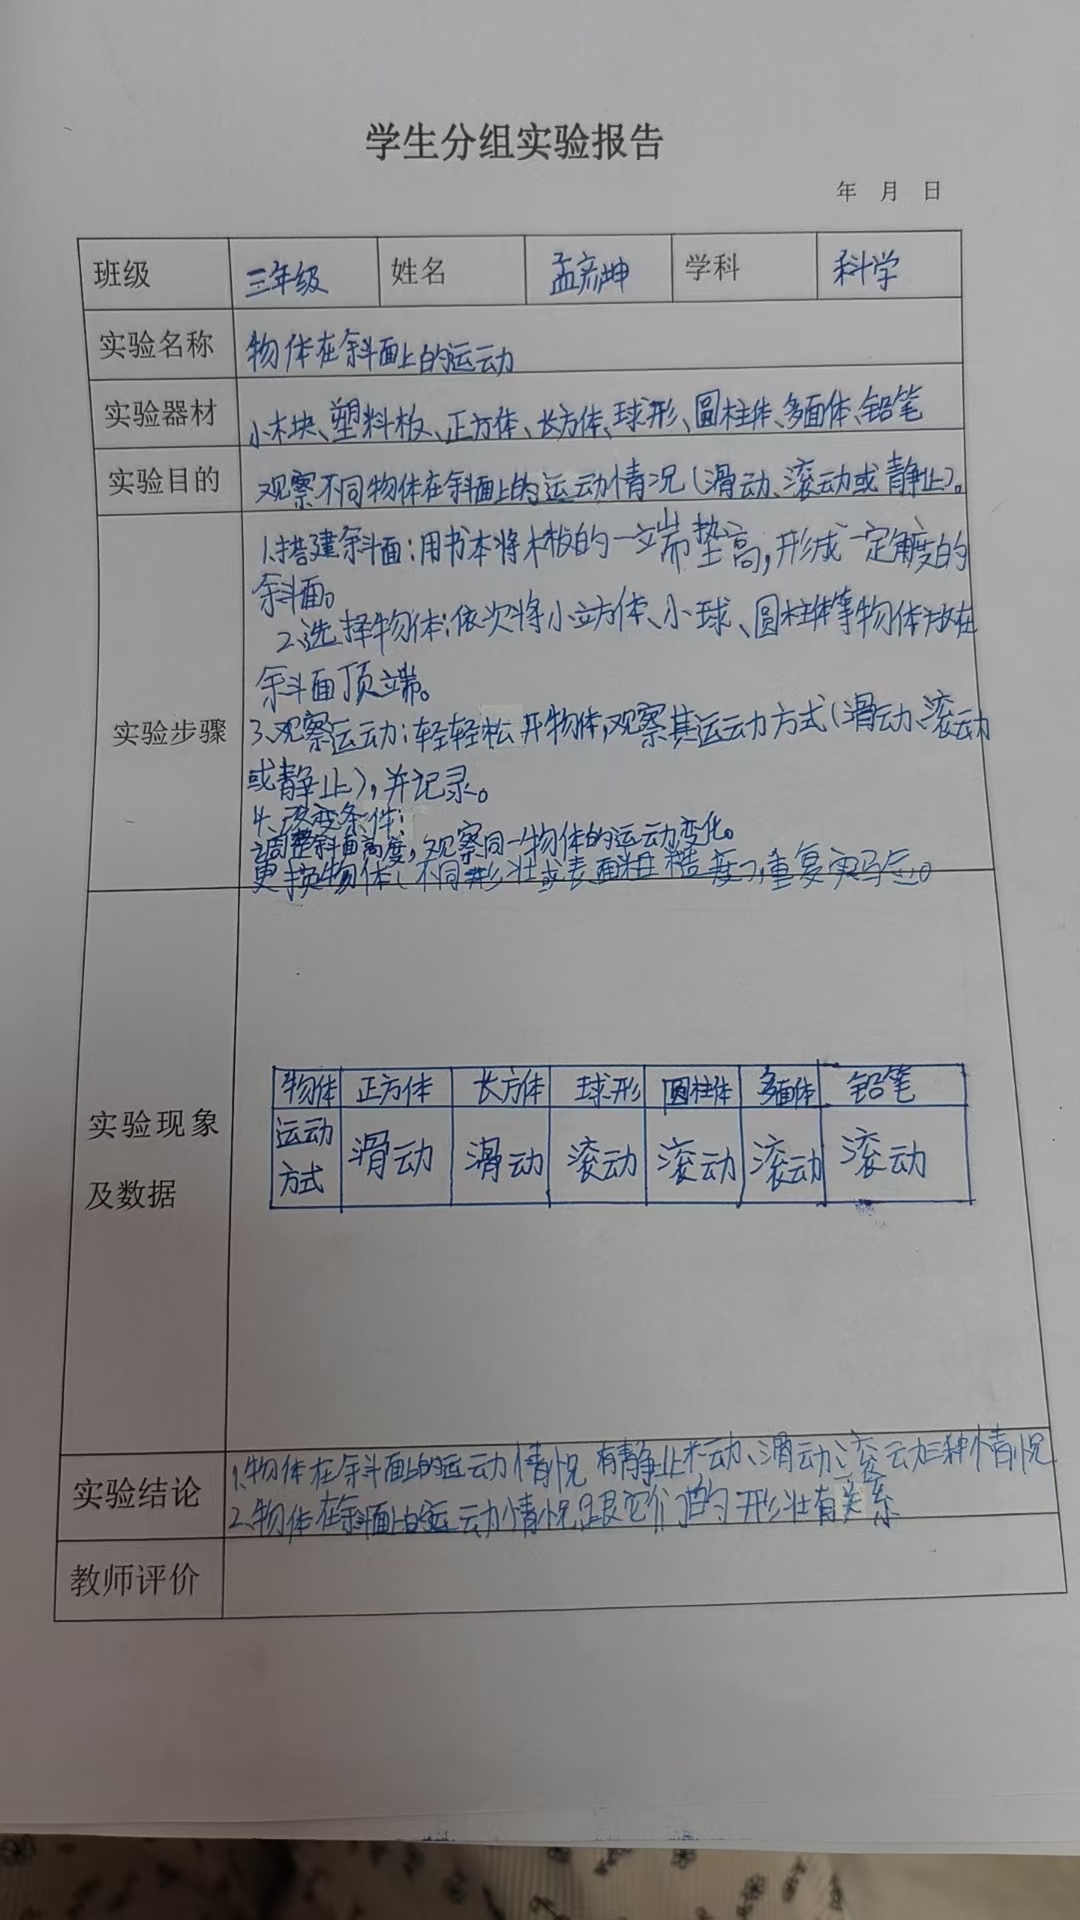 学生分组实验报告
年 月 日
班级 三年级 姓名 孟彦坤 学科 科学
实验名称 物体在斜面上的运动
实验器材 小木块、塑料板、正方体、长方体、球形、圆柱体、多面体、铅笔
实验目的 观察不同物体在斜面上的运动情况(滑动、滚动或静止)。
实验步骤
1.搭建斜面:用书本将木板的一端垫高,形成一定角度的
斜面。
2.选择物体:依次将小立方体、小球、圆柱体等物体放在
斜面顶端。
3.观察运动:轻轻松开物体,观察其运动方式(滑动、滚动
或静止),并记录。
4.改变条件:
调整斜面高度,观察同一物体的运动变化。
更换物体(不同形状或表面粗糙度),重复实验。
实验现象
及数据
物体 正方体 长方体 球形 圆柱体 多面体 铅笔
运动
方式 滑动 滑动 滚动 滚动 滚动 滚动
实验结论
1.物体在斜面上的运动情况有静止不动、滑动、滚动三种情况
2.物体在斜面上的运动情况跟它们的形状有关系
教师评价